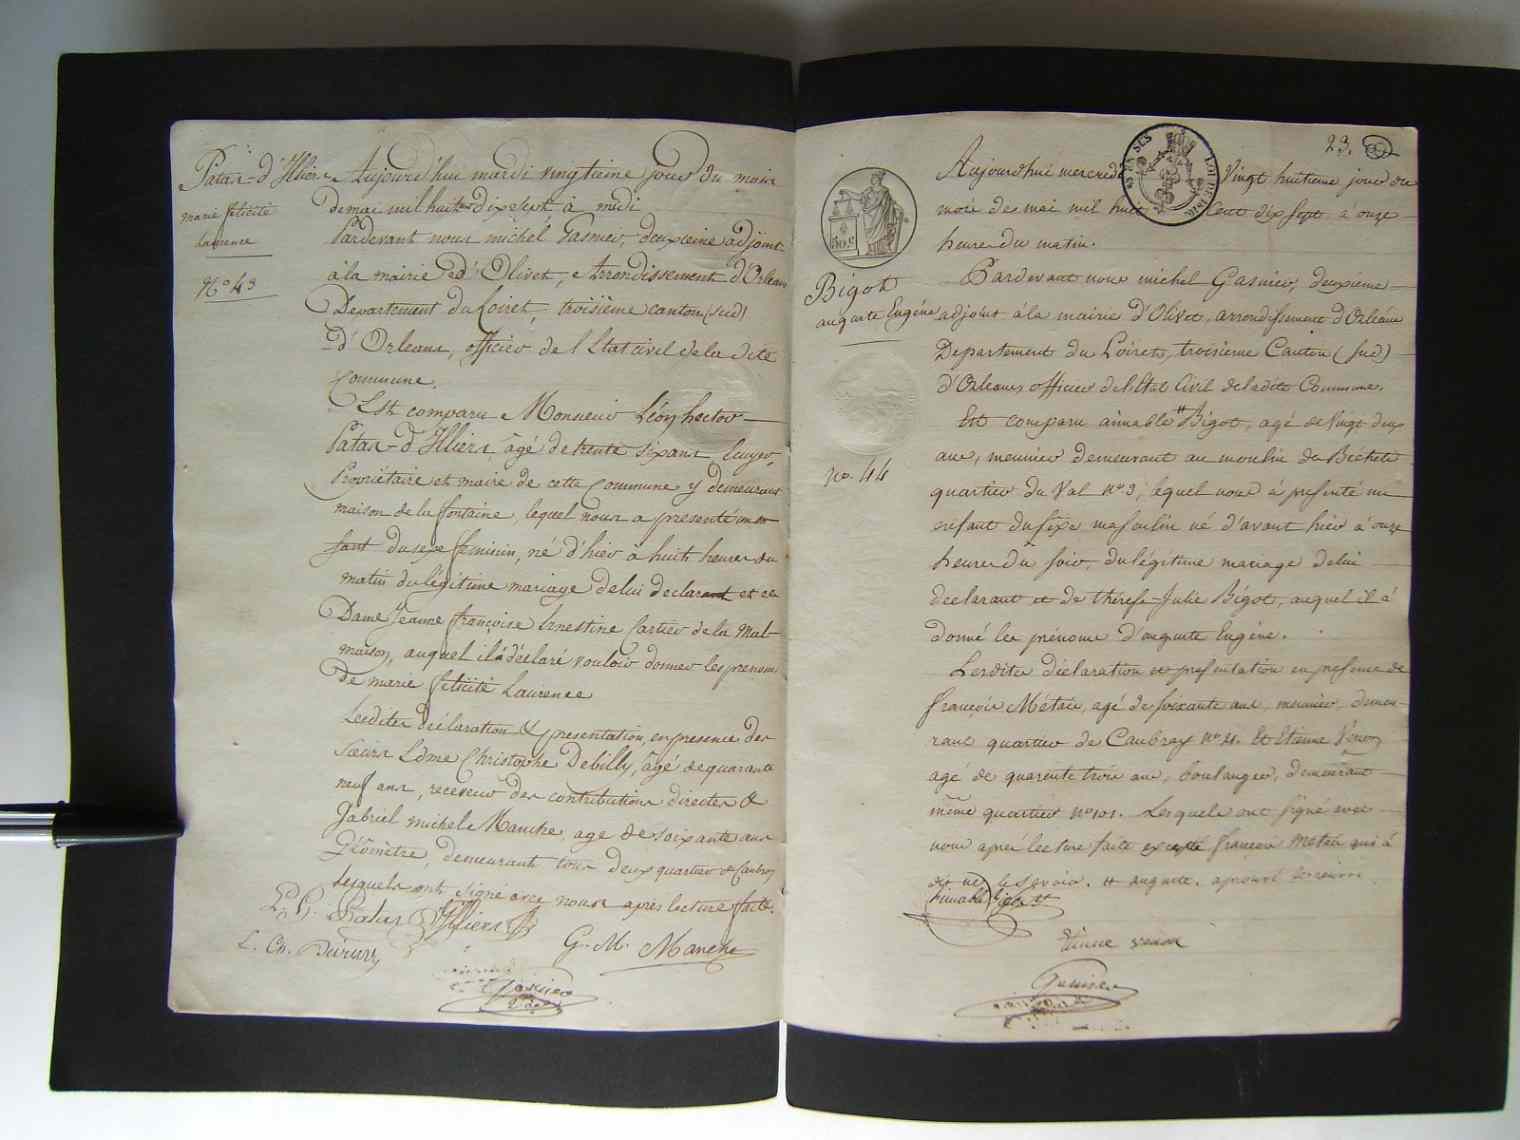 Patas-d'Illiers
marie félicité
Laurence
N° 43
Aujourd'hui mardi vingtieme jour du mois
de mai mil huit dix sept à midi
Pardevant nous michel Gasnier, deuxieme adjoint
à la mairie d'Olivet, Arrondissement d'Orleans
Departement du Loiret, troisième canton (sud)
d'Orleans, officier de l'Etat civil de la dite
commune.
Est comparu Monsieur Léon hector
Patas-d'Illiers, âgé de trente six ans,
Propriétaire et maire de cette Commune y demeurant
maison de la fontaine, lequel nous a presenté un en
fant du sexe feminin, né d'hier à huit heures du
matin du légitime mariage de lui declarant et de
Dame Jeanne françoise Ernestine Cartier de la Mal-
maison, auquel il a déclaré vouloir donner les prenoms
de marie félicité Laurence
Lesdites déclaration & presentation, en presence des
Sieurs Edme Christophe Debilly, âgé de quarante
neuf ans, receveur des contributions directes &
Gabriel michel Manche, age de soixante ans
Géomètre, demeurant tous deux quartier de Caubray
lesquels ont signé avec nous après lecture faite.
Patas d'Illiers
G. M. Manche
Gasnier
23.
50 c
Bigot
auguste Eugène
no. 44
Aujourdhui mercredi Vingt huitieme jour du
mois de mai mil huit Cent dix sept à onze
heures du matin.
Pardevant nous michel Gasnier, deuxième
adjoint à la mairie d'Olivet, arrondissement d'Orléans
Departement du Loiret, troisieme Canton (Sud)
d'Orleans officier de l'Etat Civil de ladite Commune.
Est comparu aimable Bigot, agé de Vingt deux
ans, meunier demeurant au moulin de Béchets
quartier du Val n° 3, lequel nous à présenté un
enfant du sexe masculin né d'avant hier à onze
heures du soir, du légitime mariage de lui
declarant et de thérèse-Julie Bigot, auquel il à
donné les prénoms d'auguste Eugène.
Lesdites déclaration et presentation en presence de
françois Métais, agé de soixante ans, meunier, demeu-
rant quartier de Caubray n° 21. Et Etienne Venon
agé de quarente trois ans, boulanger, demeurant
même quartier n° 101. Lesquels ont signé avec
nous après lecture faite excepté françois Métais qui à
dit ne le savoir. # auguste. aprouvé
aimable Bigot
Etienne venon
Gasnier